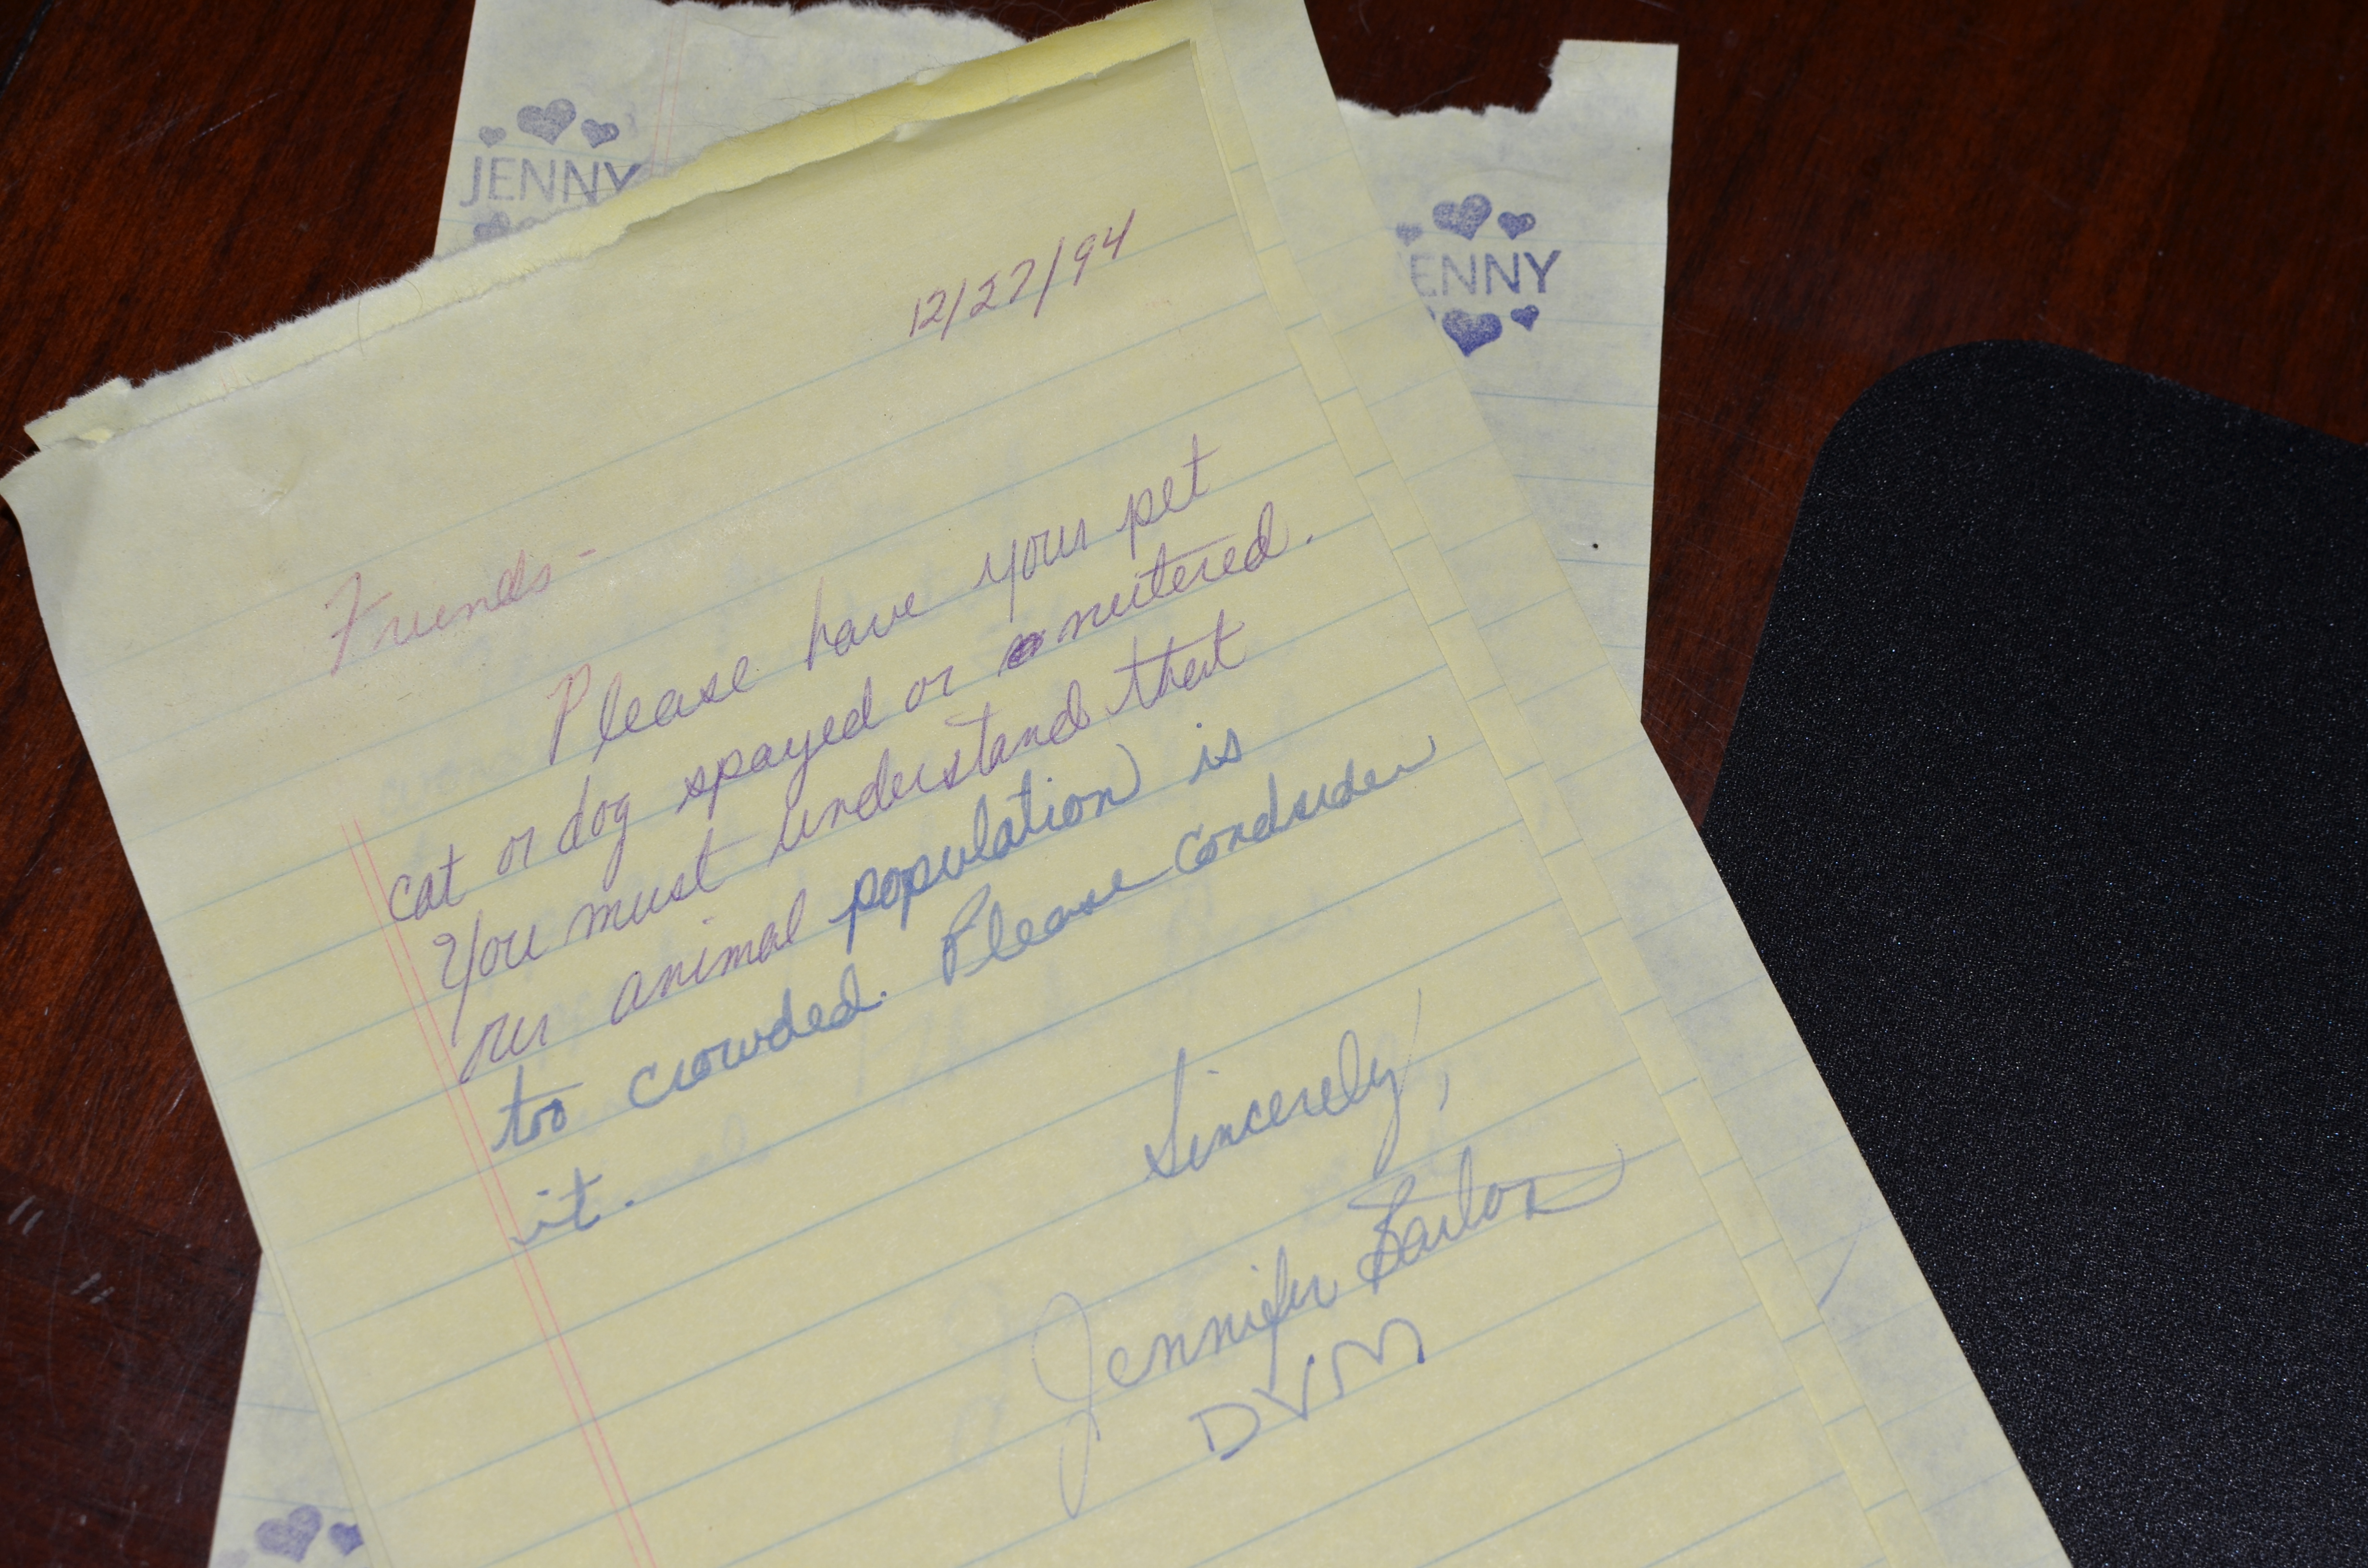 JENNY
ENNY
12/27/94
Friends-
Please have your pet
cat or dog spayed or nuitered.
You must understand that
animal population is
too crowded. Please condsider
it.
Sincerely,
Jennifer
DVM